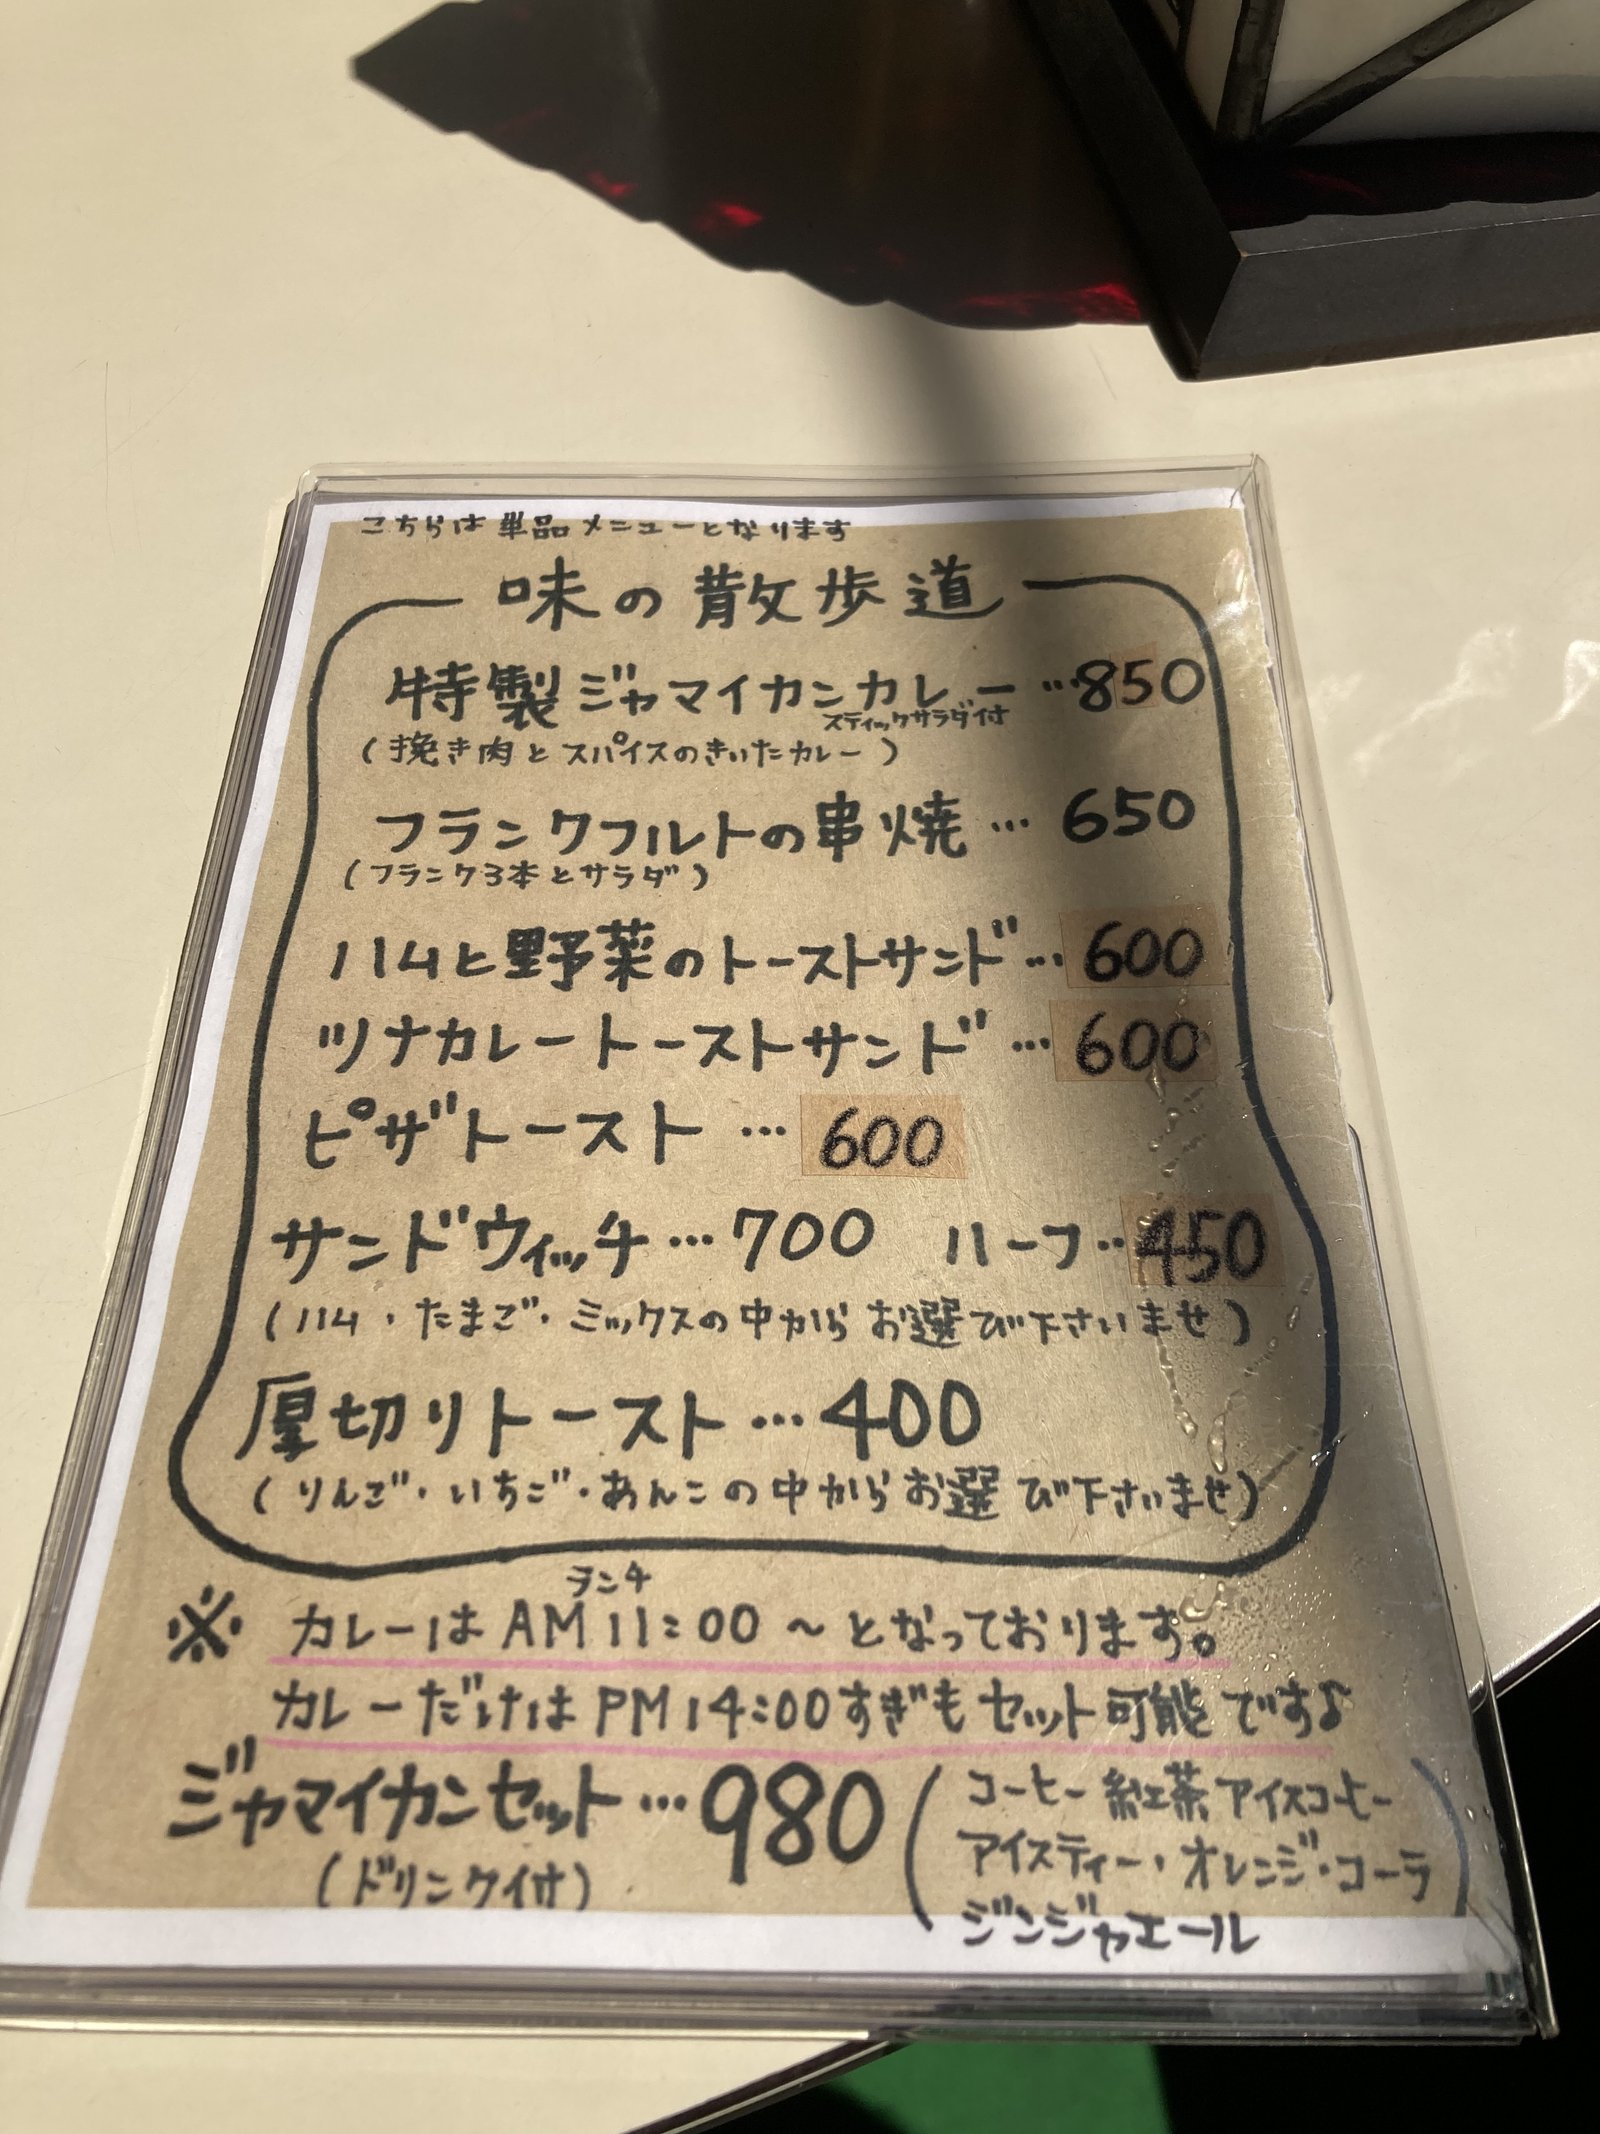 こちらは単品メニューとなります
味の散歩道
特製ジャマイカンカレー…850
スティックサラダ付
(挽き肉とスパイスのきいたカレー)
フランクフルトの串焼…650
(フランク3本とサラダ)
ハムと野菜のトーストサンド…600
ツナカレートーストサンド…600
ピザトースト…600
サンドウィッチ…700 ハーフ…450
(ハム・たまご・ミックスの中からお選び下さいませ)
厚切りトースト…400
(りんご・いちご・あんこの中からお選び下さいませ)
ランチ
※ カレーはAM11:00～となっております。
カレーだけはPM14:00すぎもセット可能です♪
ジャマイカンセット…980
(ドリンク付)
(コーヒー 紅茶 アイスコーヒー
アイスティー・オレンジ・コーラ
ジンジャエール)